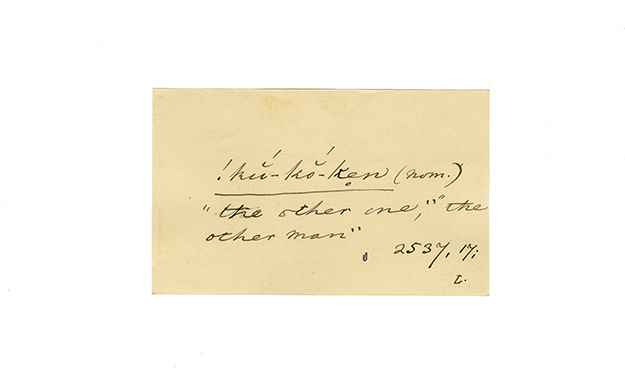 !kŭ́-kŏ́-ken̥ (nom.)
"the other one," "the
other man"
2537, 17;
L.